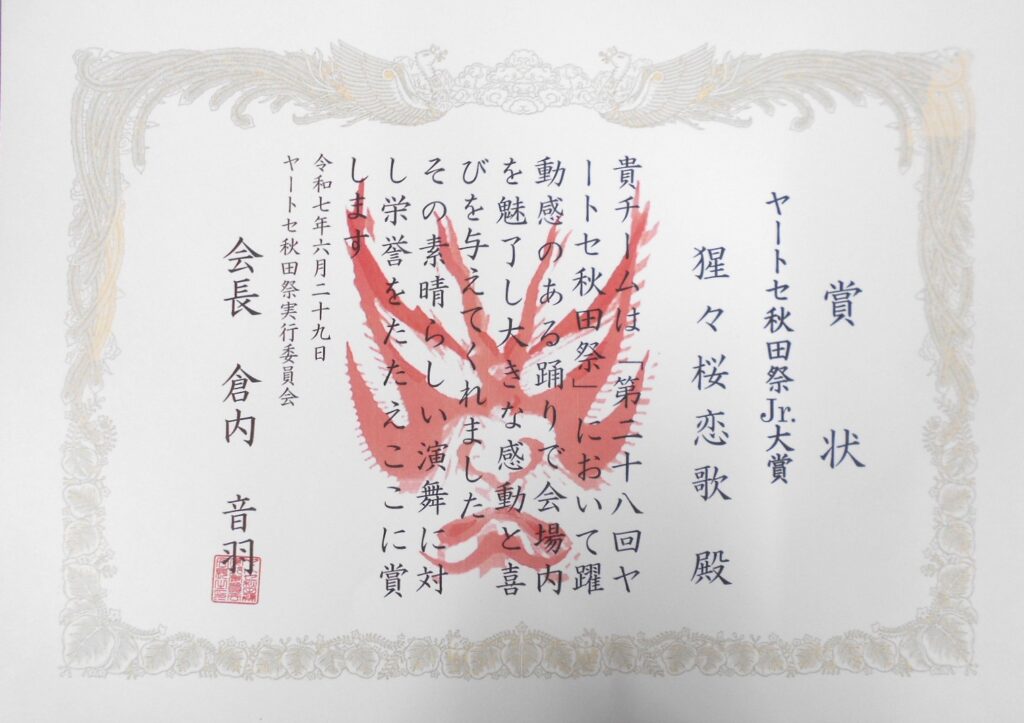 賞状
ヤートセ秋田祭Jr.大賞
猩々桜恋歌 殿
貴チームは「第二十八回ヤ
ートセ秋田祭」において躍
動感のある踊りで会場内
を魅了し大きな感動と喜
びを与えてくれました
その素晴らしい演舞に対
し栄誉をたたえここに賞
します
令和七年六月二十九日
ヤートセ秋田祭実行委員会
会長 倉内 音羽